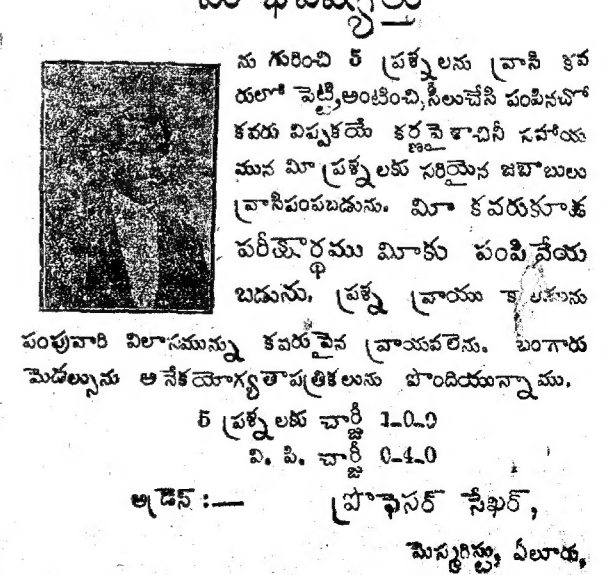 మీ భవిష్యత్తు
ను గురించి 5 ప్రశ్నలను వ్రాసి కవ
రులో పెట్టి,అంటించి,సీలుచేసి పంపినచో
కవరు విప్పకయే కర్ణపైశాచినీ సహాయ
మున మీ ప్రశ్నలకు సరియైన జబాబులు
వ్రాసిపంపబడును. మీ కవరుకూడ
పరీక్షార్థము మీకు పంపివేయ
బడును. ప్రశ్న వ్రాయు
పంపువారి విలాసమున్ను కవరుపైన వ్రాయవలెను. బంగారు
మెడల్సును అనేకయోగ్యతాపత్రికలును పొందియున్నాము.
5 ప్రశ్నలకు చార్జీ 1-0-0
వి. పి. చార్జీ 0-4-0
అడ్రెస్ :— ప్రొఫెసర్ సేఖర్,
మెస్మరిస్టు, ఏలూరు.